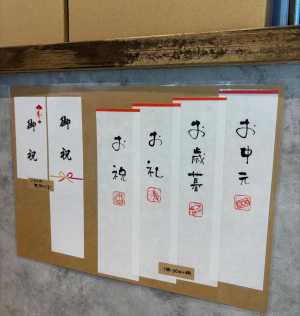 お中元
お歳暮
お礼
お祝
御祝
御祝